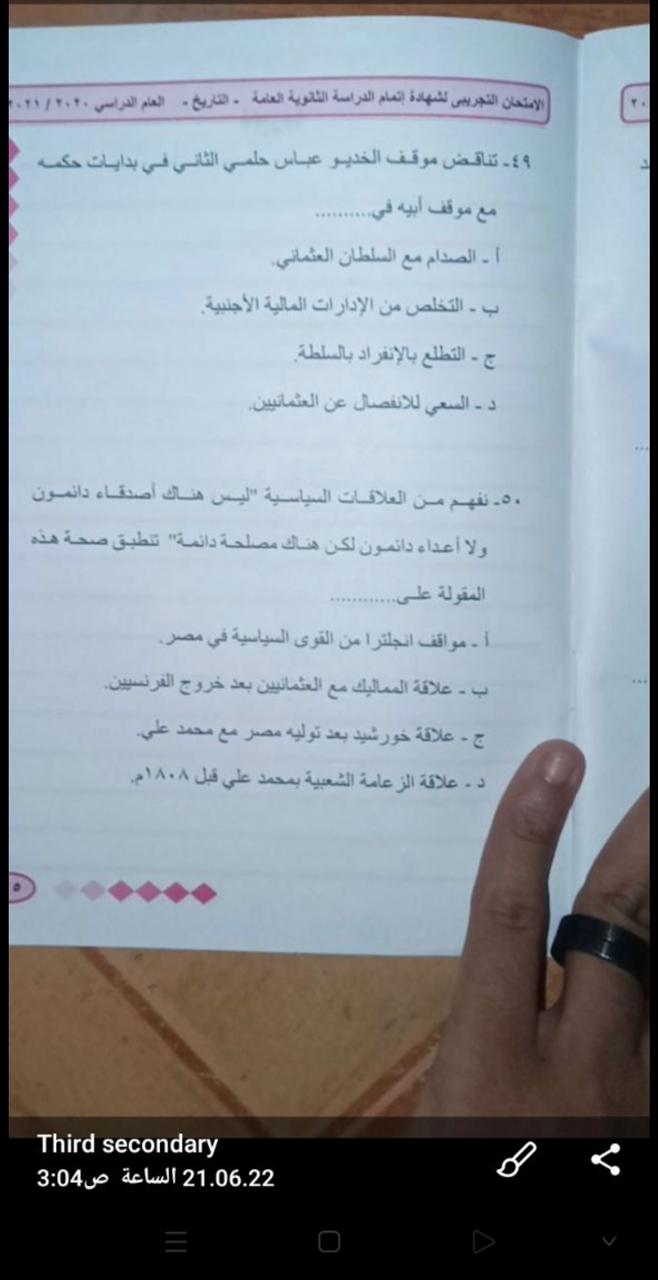 الامتحان التجريبى لشهادة إتمام الدراسة الثانوية العامة - التاريخ - العام الدراسي ٢٠٢٠ / ٢٠٢١
٤٩- تناقض موقف الخديو عباس حلمي الثاني في بدايات حكمه
مع موقف أبيه في..........
أ - الصدام مع السلطان العثماني.
ب - التخلص من الإدارات المالية الأجنبية.
ج - التطلع بالإنفراد بالسلطة.
د - السعي للانفصال عن العثمانيين.
٥٠- نفهم من العلاقات السياسية "ليس هناك أصدقاء دائمون
ولا أعداء دائمون لكن هناك مصلحة دائمة" تنطبق صحة هذه
المقولة على............
أ - مواقف انجلترا من القوى السياسية في مصر.
ب - علاقة المماليك مع العثمانيين بعد خروج الفرنسيين.
ج - علاقة خورشيد بعد توليه مصر مع محمد علي.
د - علاقة الزعامة الشعبية بمحمد علي قبل ١٨٠٨م.
Third secondary
21.06.22 الساعة 3:04ص